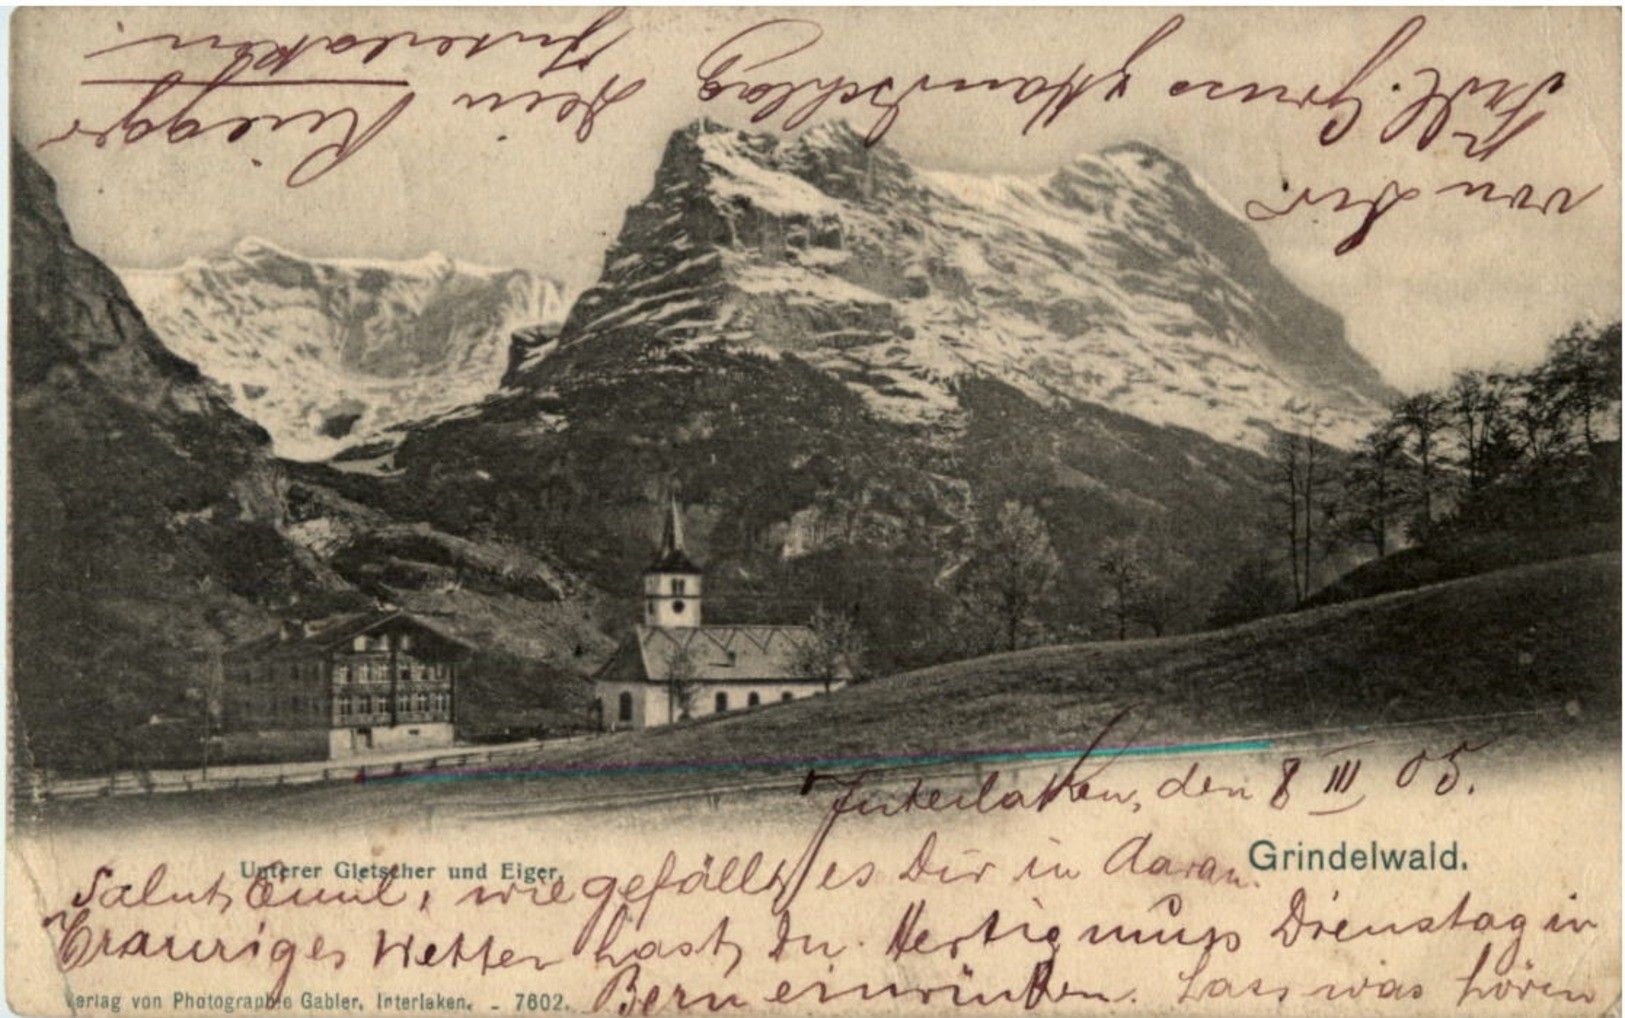 Interlaken, den 8 III 05.
Unterer Gletscher und Eiger.
Grindelwald.
Salut Emil, wie gefällt es Dir in Aarau.
Trauriges Wetter hast Du. Hertig muss Dienstag in
Bern einrücken. Lass was hören
Verlag von Photographie Gabler, Interlaken. - 7602.
von Dir.
Frdl. Gruss & Handschlag
Dein Rüegger
Interlaken.